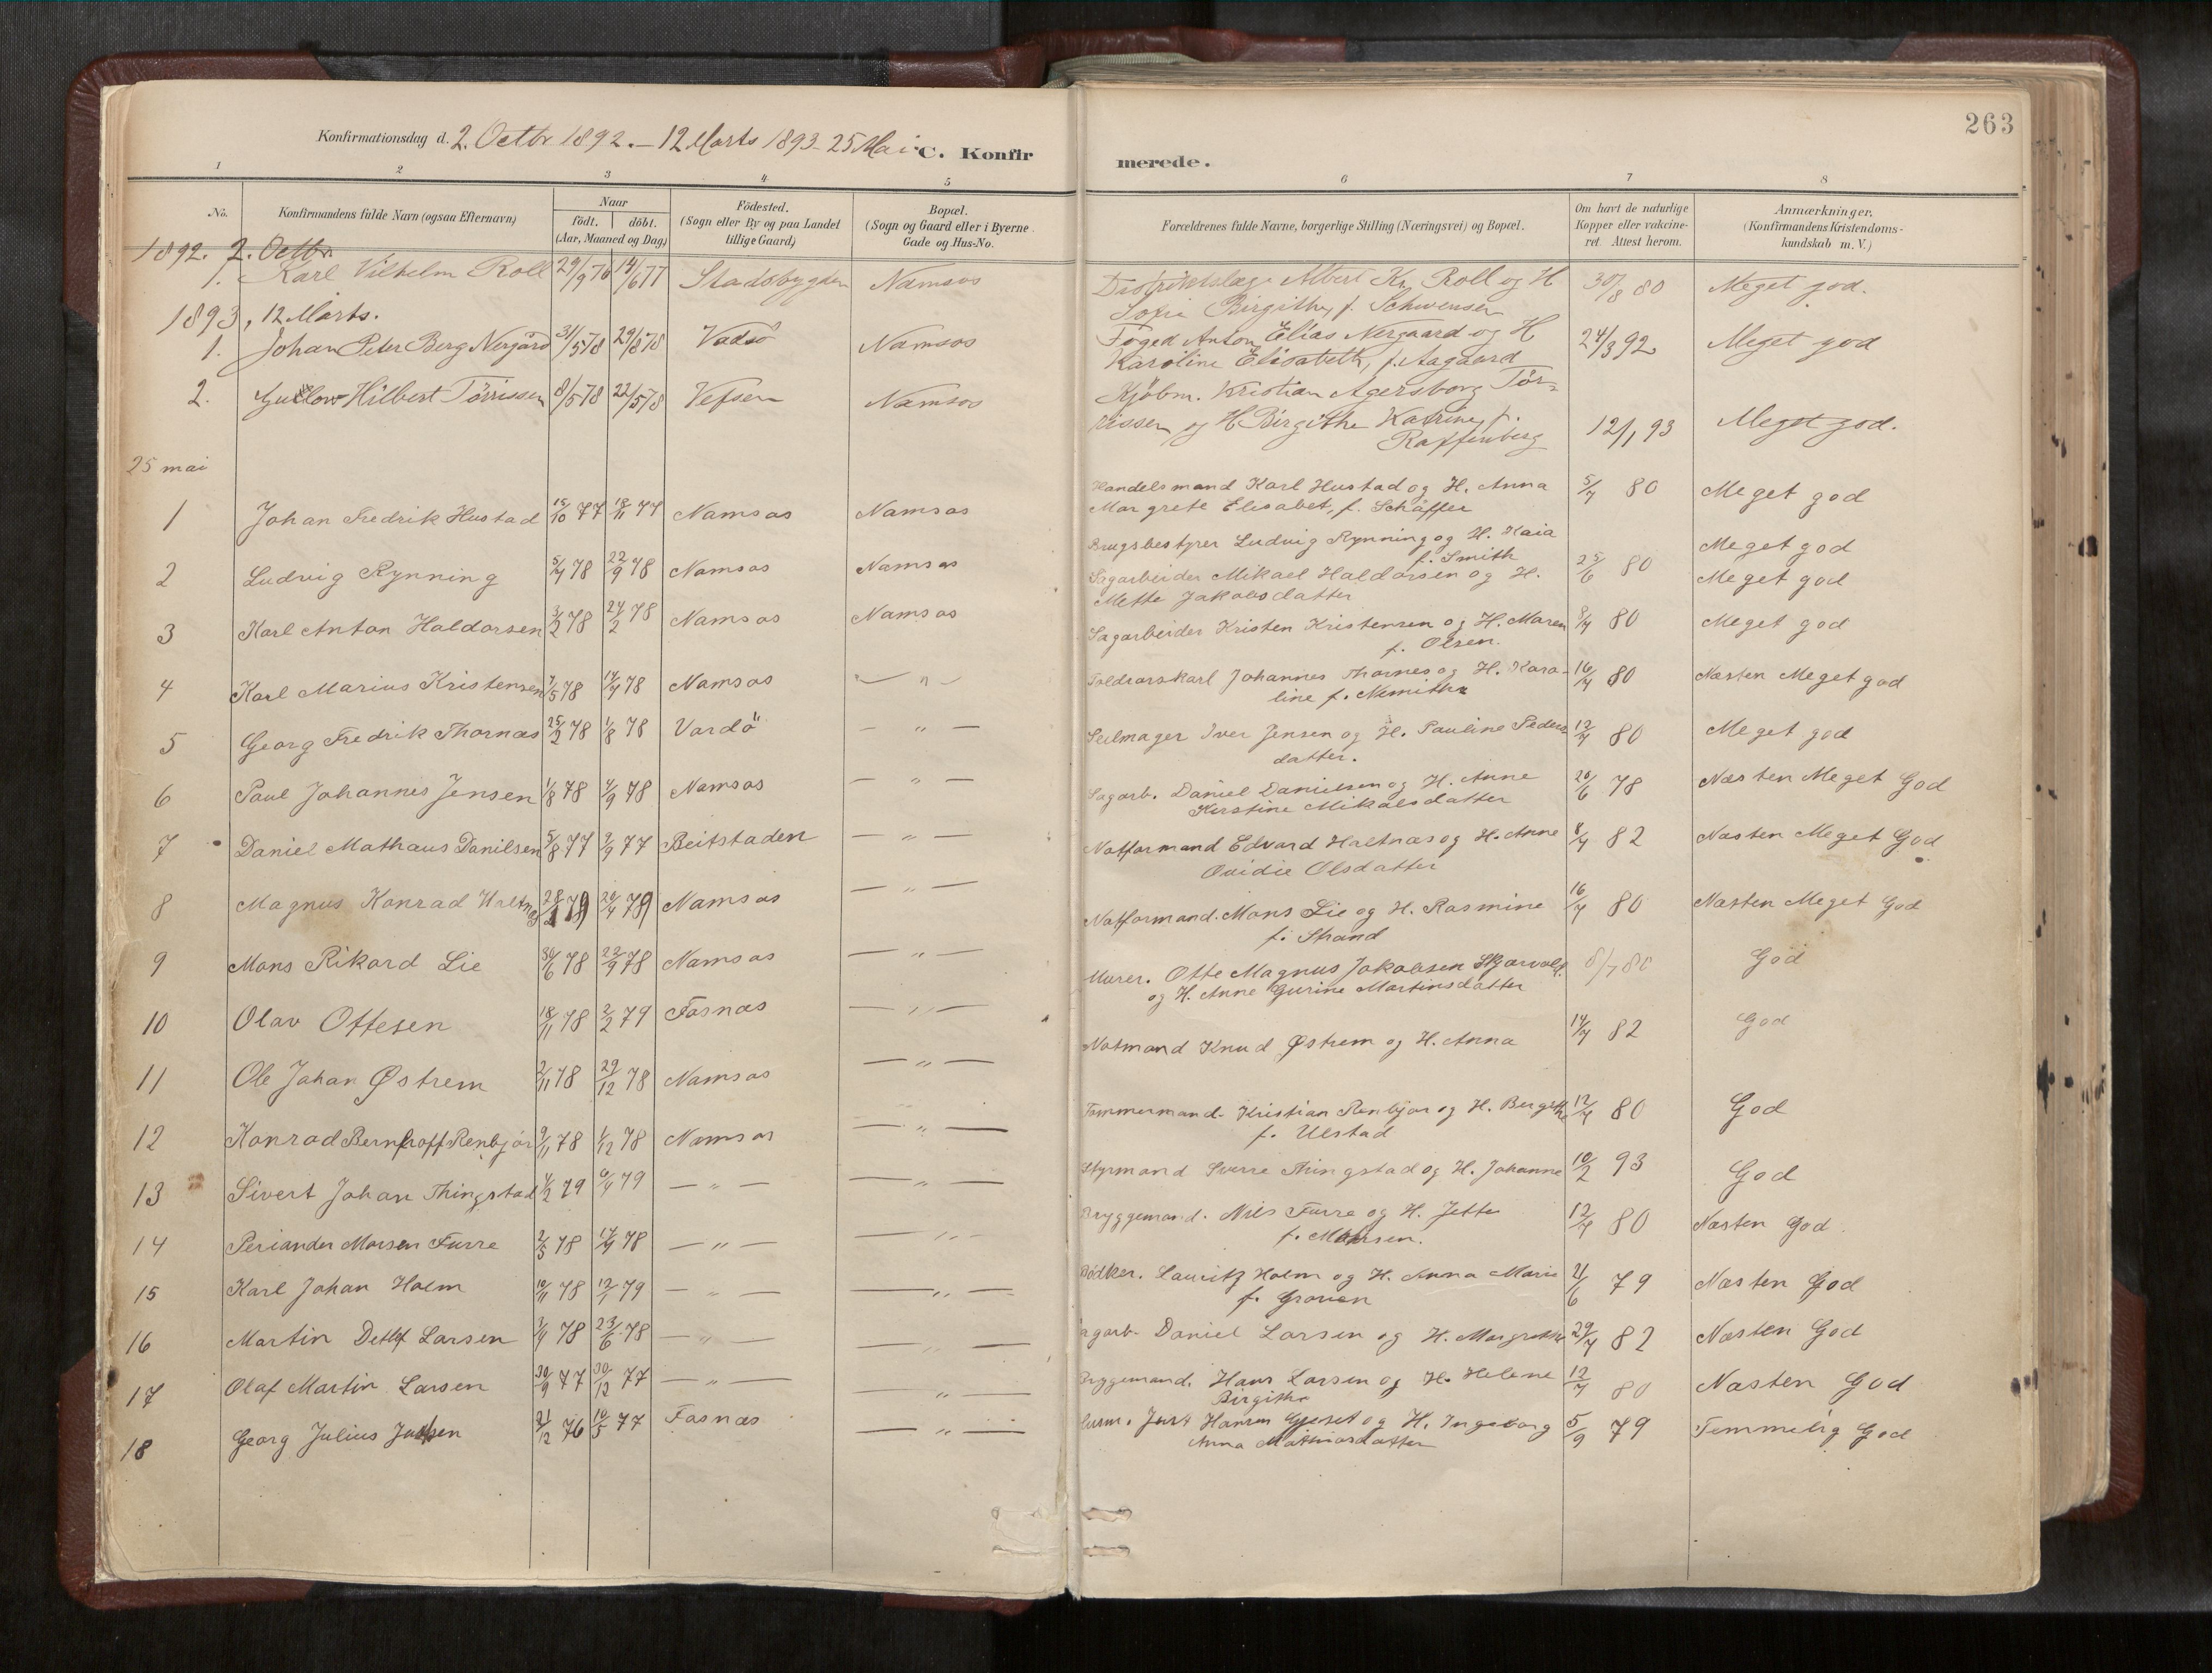 263
Konfirmationsdag d. 2. Octbr 1892. – 12 Marts 1893 – 25 Mai C. Konfirmerede.
1 2 3 4 5 6 7 8
No. Konfirmandens fulde Navn (ogsaa Efternavn) Naar födt. döbt. (Aar, Maaned og Dag) Födested. (Sogn eller By og paa Landet tillige Gaard) Bopæl. (Sogn og Gaard eller i Byerne Gade og Hus-No. Forældrenes fulde Navne, borgerlige Stilling (Næringsvei) og Bopæl. Om havt de naturlige Kopper eller vakcineret. Attest herom. Anmærkninger. (Konfirmandens Kristendomskundskab m. V.)
1892. 2. Octbr.
1. Karl Vilhelm Roll 29/9 76 14/6 77 Stadsbygden Namsos Distriktslæge Albert Kr. Roll og H 30/8 80 Meget god.
Sofie Birgithe, f. Schwensen
1893, 12 Marts.
1. Johan Peter Berg Nergård 31/5 78 29/8 78 Vadsö Namsos Foged Anton Elias Nergaard og H 24/3 92 Meget god
Karoline Elisabeth, f. Aagaard
2. Hilbert Törrissen 8/5 78 22/5 78 Vefsen Namsos Kjöbm. Kristian Agersborg Tör-
rissen og H Birgithe Katrine, f. 12/1 93 Meget god.
Raffenberg
25 mai
1 Johan Fredrik Hustad 15/10 77 18/11 77 Namsos Namsos Handelsmand Karl Hustad og H. Anna 5/7 80 Meget god
Margrete Elisabet, f. Schäffer
2 Ludvig Rynning 5/7 78 22/9 78 Namsos Namsos Brugsbestyrer Ludvig Rynning og H. Kaia Meget god
f. Smith
3 Karl Anton Haldorsen 3/2 78 24/2 78 Namsos Namsos Sagarbeider Mikael Haldorsen og H. 25/6 80 Meget god
Mette Jakobsdatter
4 Karl Marius Kristensen 7/5 78 14/7 78 Namsos — " — Sagarbeider Kristen Kristensen og H. Maren 8/7 80 Meget god
f. Olsen.
5 Georg Fredrik Thornæs 25/2 78 1/8 78 Vardö — " — Toldrorskarl Johannes Thornes og H. Karo- 16/7 80 Næsten Meget god
line f.
6 Paul Johannes Jensen 1/8 78 4/9 78 Namsos — " — Seilmager Iver Jensen og H. Pauline Peders 12/7 80 Meget god
datter.
7 Daniel Mathæus Danilsen 5/8 77 2/9 77 Beitstaden — " — Sagarb. Daniel Danielsen og H. Anne 20/6 78 Næsten Meget God
Kirstine Mikalsdatter
8 Magnus Konrad Haltnæs 79 20/4 79 Namsos — " — Notformand Edvard Haltnæs og H. Anne 8/7 82 Næsten Meget God
Ovidie Olsdatter
9 Mons Rikard Lie 30/6 78 22/9 78 Namsos — " — Notformand. Mons Lie og H. Rasmine 16/7 80 Næsten Meget God
f. Strand
10 Olav Ottesen 18/11 78 2/2 79 Fosnæs — " — Murer. Otte Magnus Jakobsen Skjærvold 8/7 80 God
og H. Anne Gurine Martinsdatter
11 Ole Johan Østrem 2/11 78 29/12 78 Namsos — " — Notmand Knud Østrem og H. Anna 14/7 82 God
12 Konrad Bernhoff Renbjør 9/11 78 1/12 78 Namsos — " — Tømmermand. Kristian Renbjør og H. Bergithe 12/7 80 God
f. Ulstad
13 Sivert Johan Thingstad 4/2 79 6/4 79 — " — — " — Styrmand Sverre Thingstad og H. Johanne 10/2 93 God
14 Periander Morsen Furre 2/5 78 14/4 78 — " — — " — Bryggemand. Nils Furre og H. Jette 12/7 80 Næsten God.
f. Morsen.
15 Karl Johan Holm 10/11 78 12/1 79 — " — — " — Bødker. Lauritz Holm og H. Anna Marie 21/6 79 Næsten God
f. Groven
16 Martin Detlef Larsen 3/4 78 23/6 78 — " — — " — agarb. Daniel Larsen og H. Margrethe 29/7 82 Næsten God
17 Olaf Martin Larsen 30/9 77 30/12 77 — " — — " — Bryggemand. Hans Larsen og H. Helene 12/7 80 Næsten God
Birgitha
18 Georg Julius 21/12 76 10/5 77 Fosnæs — " — Husm. Just Hansen og H. Ingeborg 5/9 79 Temmelig God
Anna